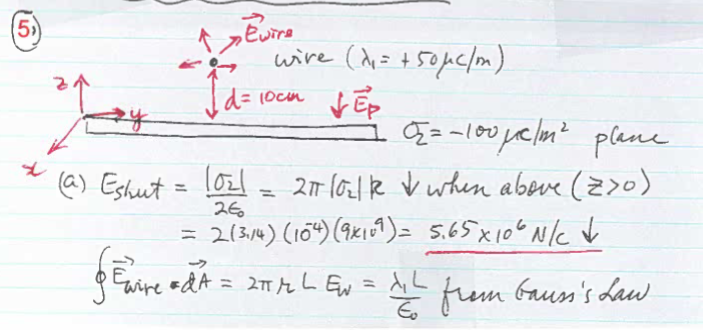 5)
E⃗wire
wire (λ₁ = +50μc/m)
z
d = 10cm
↓ E⃗p
y
σ₂ = -100 μc/m² plane
x
(a) Esheet = |σ₂|/2ε₀ = 2π|σ₂|k ↓ when above (z>0)
= 2(3.14)(10⁻⁴)(9x10⁹) = 5.65 x 10⁶ N/c ↓
∮E⃗wire • dA⃗ = 2πr L Ew = λ₁L/ε₀ from Gauss's Law